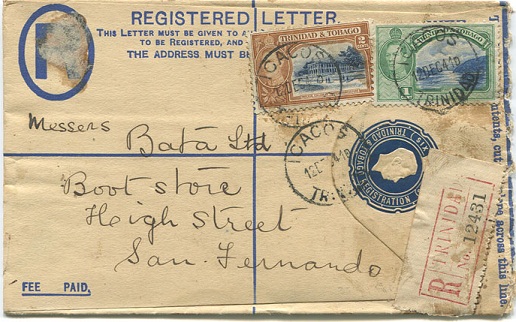 REGISTERED LETTER.
THIS LETTER MUST BE GIVEN TO A
TO BE REGISTERED, AND
THE ADDRESS MUST B
R
TRINIDAD & TOBAGO
TRINIDAD & TOBAGO
ICACOS
TRINIDAD
ICACOS
ICACOS
TRINIDAD & TOBAGO
REGISTRATION
Messers
Bata Ltd
Boot store
Heigh Street
San-Fernando
R
TRINIDAD
No. 12431
FEE PAID.
across this line.